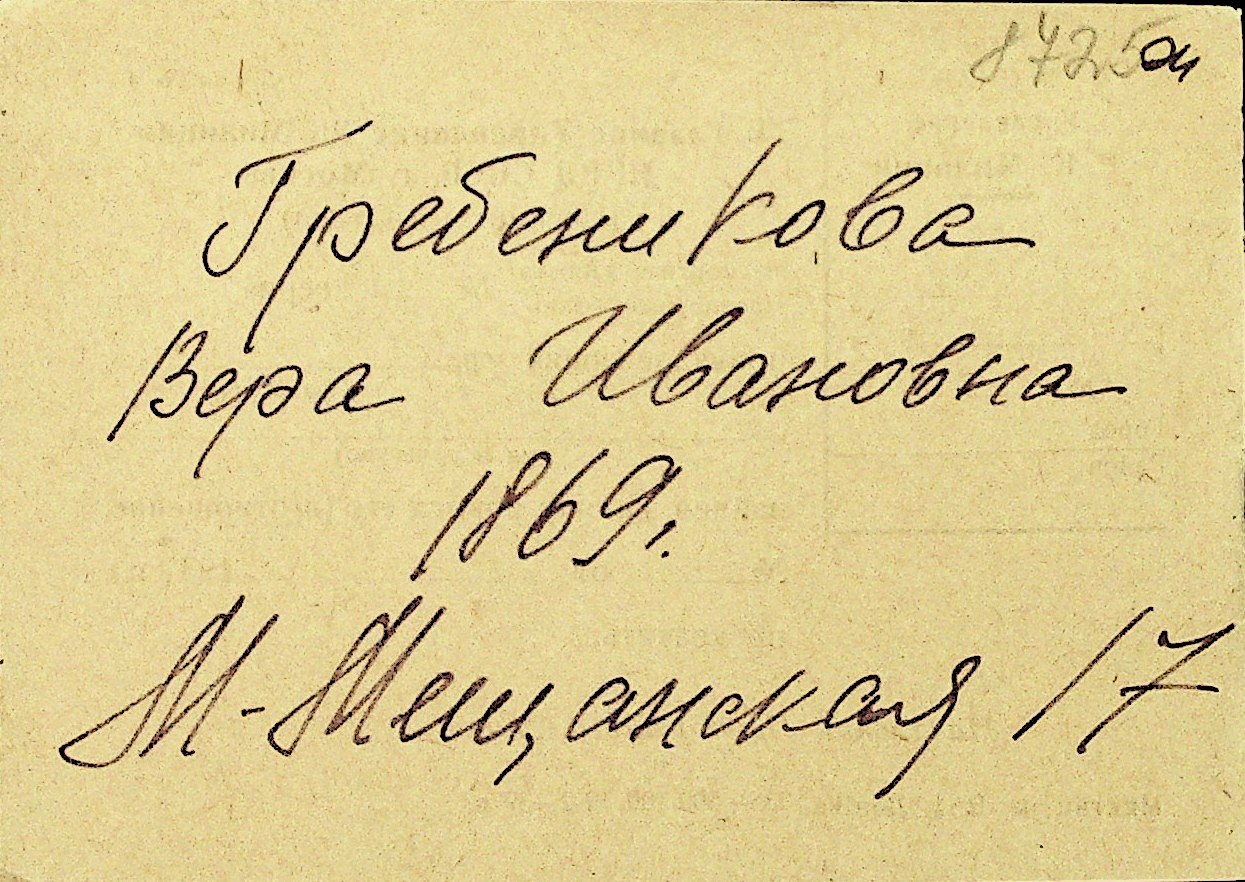 8725
Гребеникова
Вера Ивановна
1869г.
М-Мещанская 17